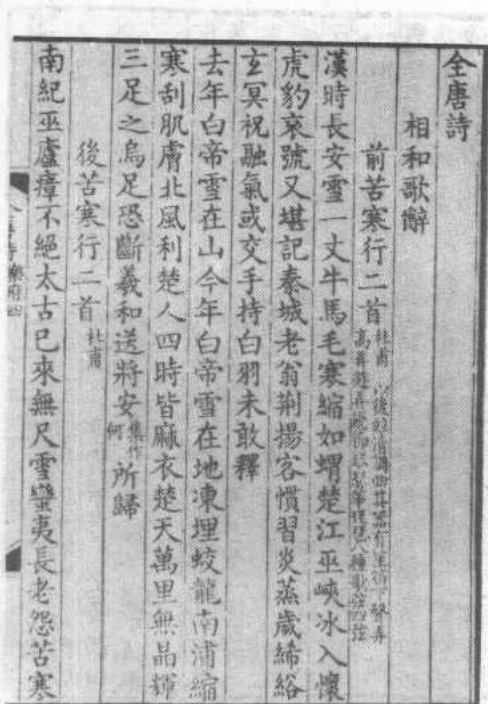 全唐詩
相和歌辭
前苦寒行二首 杜甫
漢時長安雪一丈牛馬毛寒縮如蝟楚江巫峽冰入懷
虎豹哀號又堪記秦城老翁荆揚客慣習炎蒸歲絺綌
玄冥祝融氣或交手持白羽未敢釋
去年白帝雪在山今年白帝雪在地凍埋蛟龍南浦縮
寒刮肌膚北風利楚人四時皆麻衣楚天萬里無晶輝
三足之烏足恐斷羲和送將安集作何所歸
後苦寒行二首 杜甫
南紀巫廬瘴不絕太古已來無尺雪蠻夷長老怨苦寒